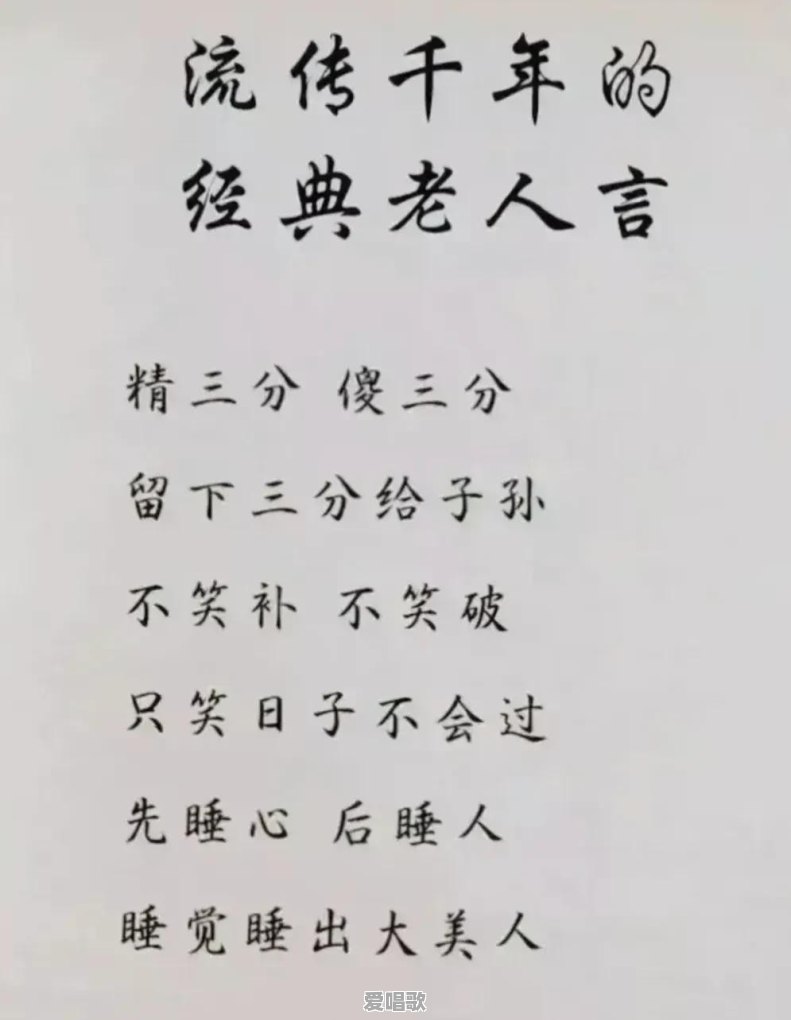 流传千年的
经典老人言
精三分 傻三分
留下三分给子孙
不笑补 不笑破
只笑日子不会过
先睡心 后睡人
睡觉睡出大美人
爱唱歌